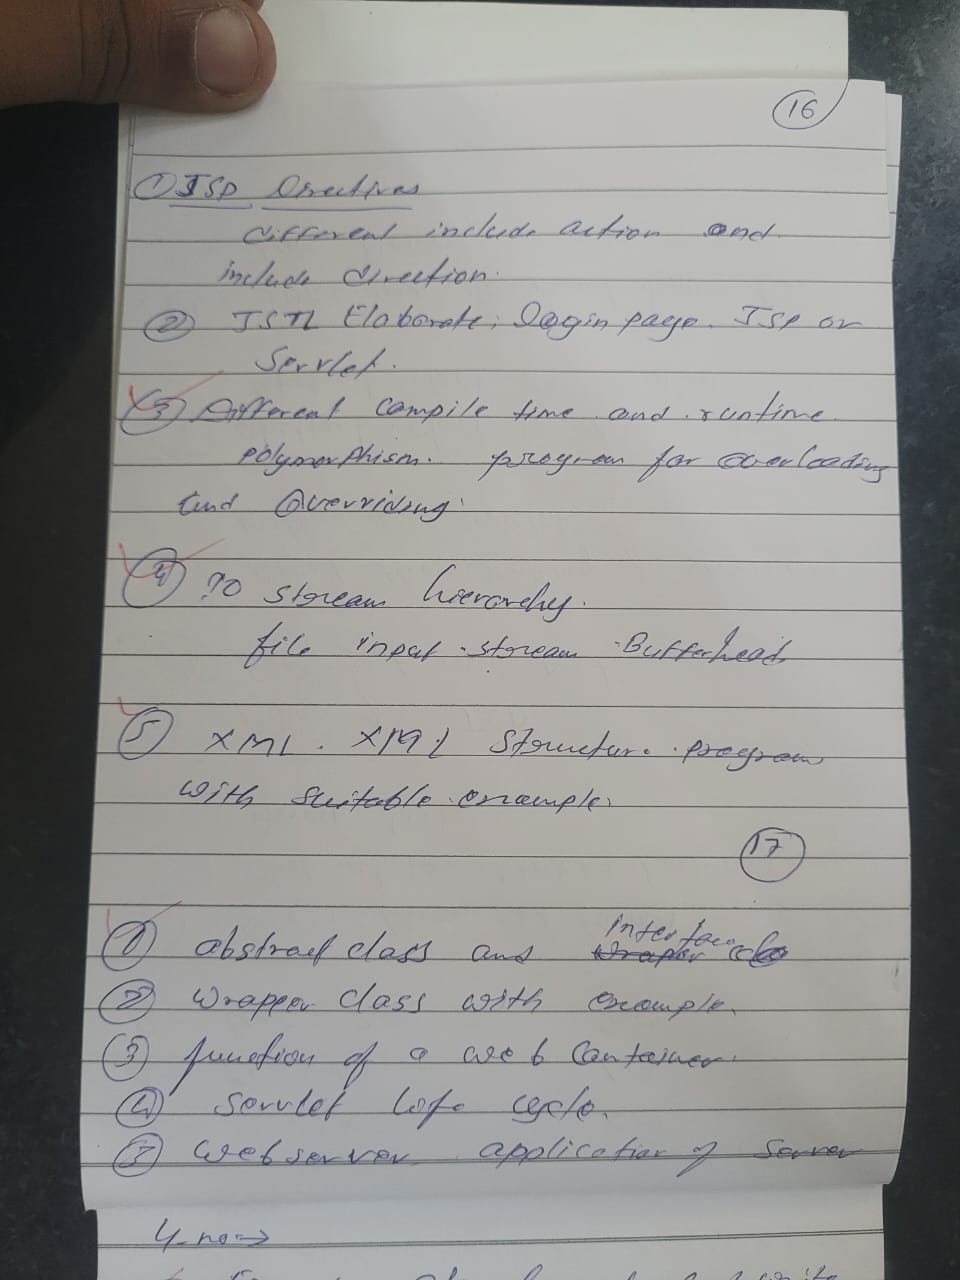 16
① JSP Directives
different include action and
include direction.
② JSTL Elaborate, login page. JSP or
Servlet.
③ Different compile time and runtime
polymorphism. program for overloading
and Overriding
④ IO stream hierarchy.
file input stream Bufferhead
⑤ XML. XML structure. program
with suitable example.
17
① abstract class and interface
② Wrapper class with example.
③ function of a web container.
④ Servlet life cycle.
⑤ web server application of server
4-no→